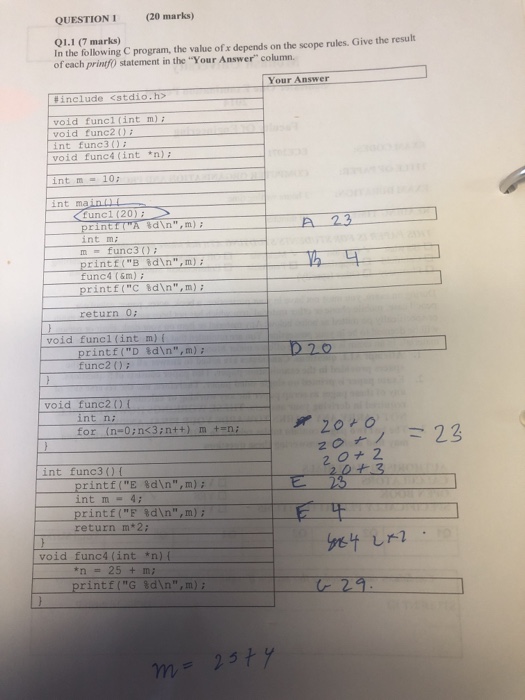 QUESTION 1 (20 marks)
Q1.1 (7 marks)
In the following C program, the value of x depends on the scope rules. Give the result
of each printf() statement in the "Your Answer" column.
Your Answer
#include <stdio.h>
void func1(int m);
void func2();
int func3();
void func4(int *n);
int m = 10;
int main(){
func1(20);
printf("A %d\n",m); A 23
int m;
m = func3();
printf("B %d\n",m); B 4
func4(&m);
printf("C %d\n",m);
return 0;
}
void func1(int m){
printf("D %d\n",m); D 20
func2();
}
void func2(){
int n;
for (n=0;n<3;n++) m +=n;
}
20+0
20+1 = 23
20+2
20+3
int func3(){
printf("E %d\n",m); E 23
int m = 4;
printf("F %d\n",m); F 4
return m*2;
}
void func4(int *n){
*n = 25 + m;
printf("G %d\n",m); G 29.
}
m = 25+4